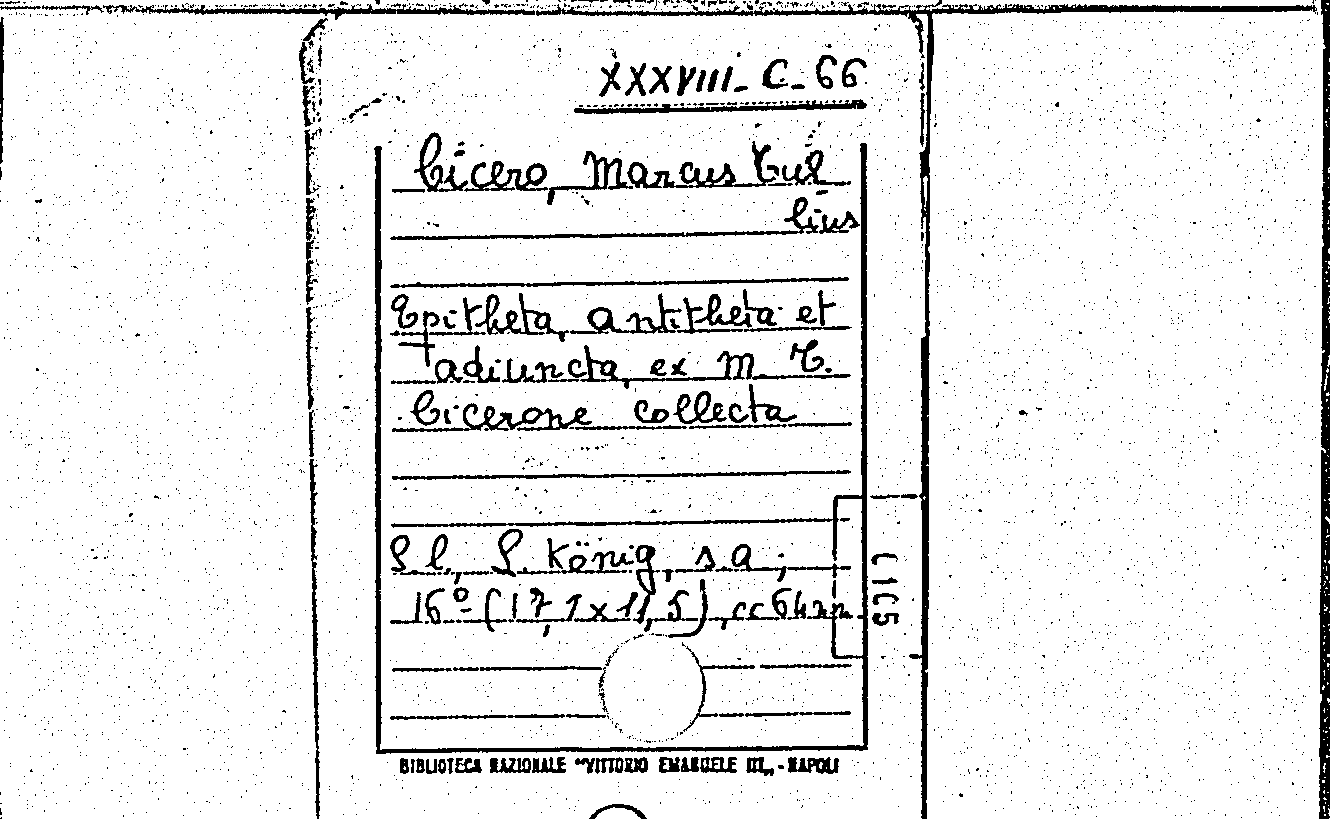 XXXVIII-C-66
Cicero, Marcus Tul
lius
Epitheta, antitheta et
adiuncta, ex M. T.
Cicerone collecta
S.l., S. König, s.a;
16º (17,1x11,5), cc 64nn.
BIBLIOTECA NAZIONALE "VITTORIO EMANUELE III„ - NAPOLI